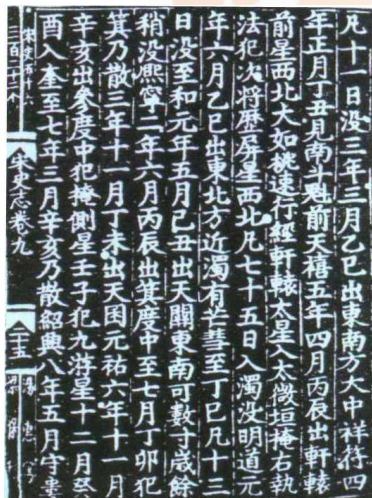 凡十一日没三年三月乙巳出東南方大中祥符四
年正月丁丑見南斗魁前天禧五年四月丙辰出軒轅
前星西北大如桃速行經軒轅太星入太微垣掩右執
法犯次將歷屏星西北凡七十五日入濁没明道元
年六月乙巳出東北方近濁有芒彗至丁巳凡十三
日没至和元年五月己丑出天關東南可數寸歲餘
稍没熈寧二年六月丙辰出箕度中至七月丁卯犯
箕乃散三年十一月丁未出天囷元祐六年十一月
辛亥出參度中犯掩側星壬子犯九游星十二月癸
酉入奎至七年三月辛亥乃散紹興八年五月守婁
宋史志卷九